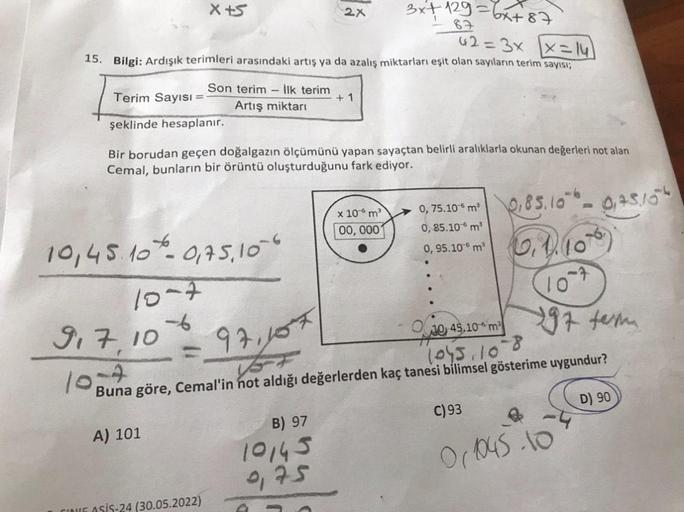 x+5
2x
3x+129=6x+87
- 87
42=3x x=14
15. Bilgi: Ardışık terimleri arasındaki artış ya da azalış miktarları eşit olan sayıların terim sayısı;
Terim Sayısı = Son terim – İlk terim / Artış miktarı + 1
şeklinde hesaplanır.
Bir borudan geçen doğalgazın ölçümünü yapan sayaçtan belirli aralıklarla okunan değerleri not alan
Cemal, bunların bir örüntü oluşturduğunu fark ediyor.
x 10⁻⁶ m³
00, 000
0, 75.10⁻⁶ m³
0, 85.10⁻⁶ m³
0, 95.10⁻⁶ m³
10, 45.10⁻⁶ m³
0,85.10⁻⁶ - 0,75.10⁻⁶
0,1.10⁻⁶
10⁻⁷
97 term
10,45.10⁻⁶ - 0,75.10⁻⁶
10⁻⁷
9,7.10⁻⁶ = 97.10⁻⁷
10⁻⁷ 10⁻⁷
1045.10⁻⁸
Buna göre, Cemal'in not aldığı değerlerden kaç tanesi bilimsel gösterime uygundur?
A) 101
B) 97
C) 93
D) 90
0,1045.10⁻⁴
10,45
0,75
ASİS-24 (30.05.2022)